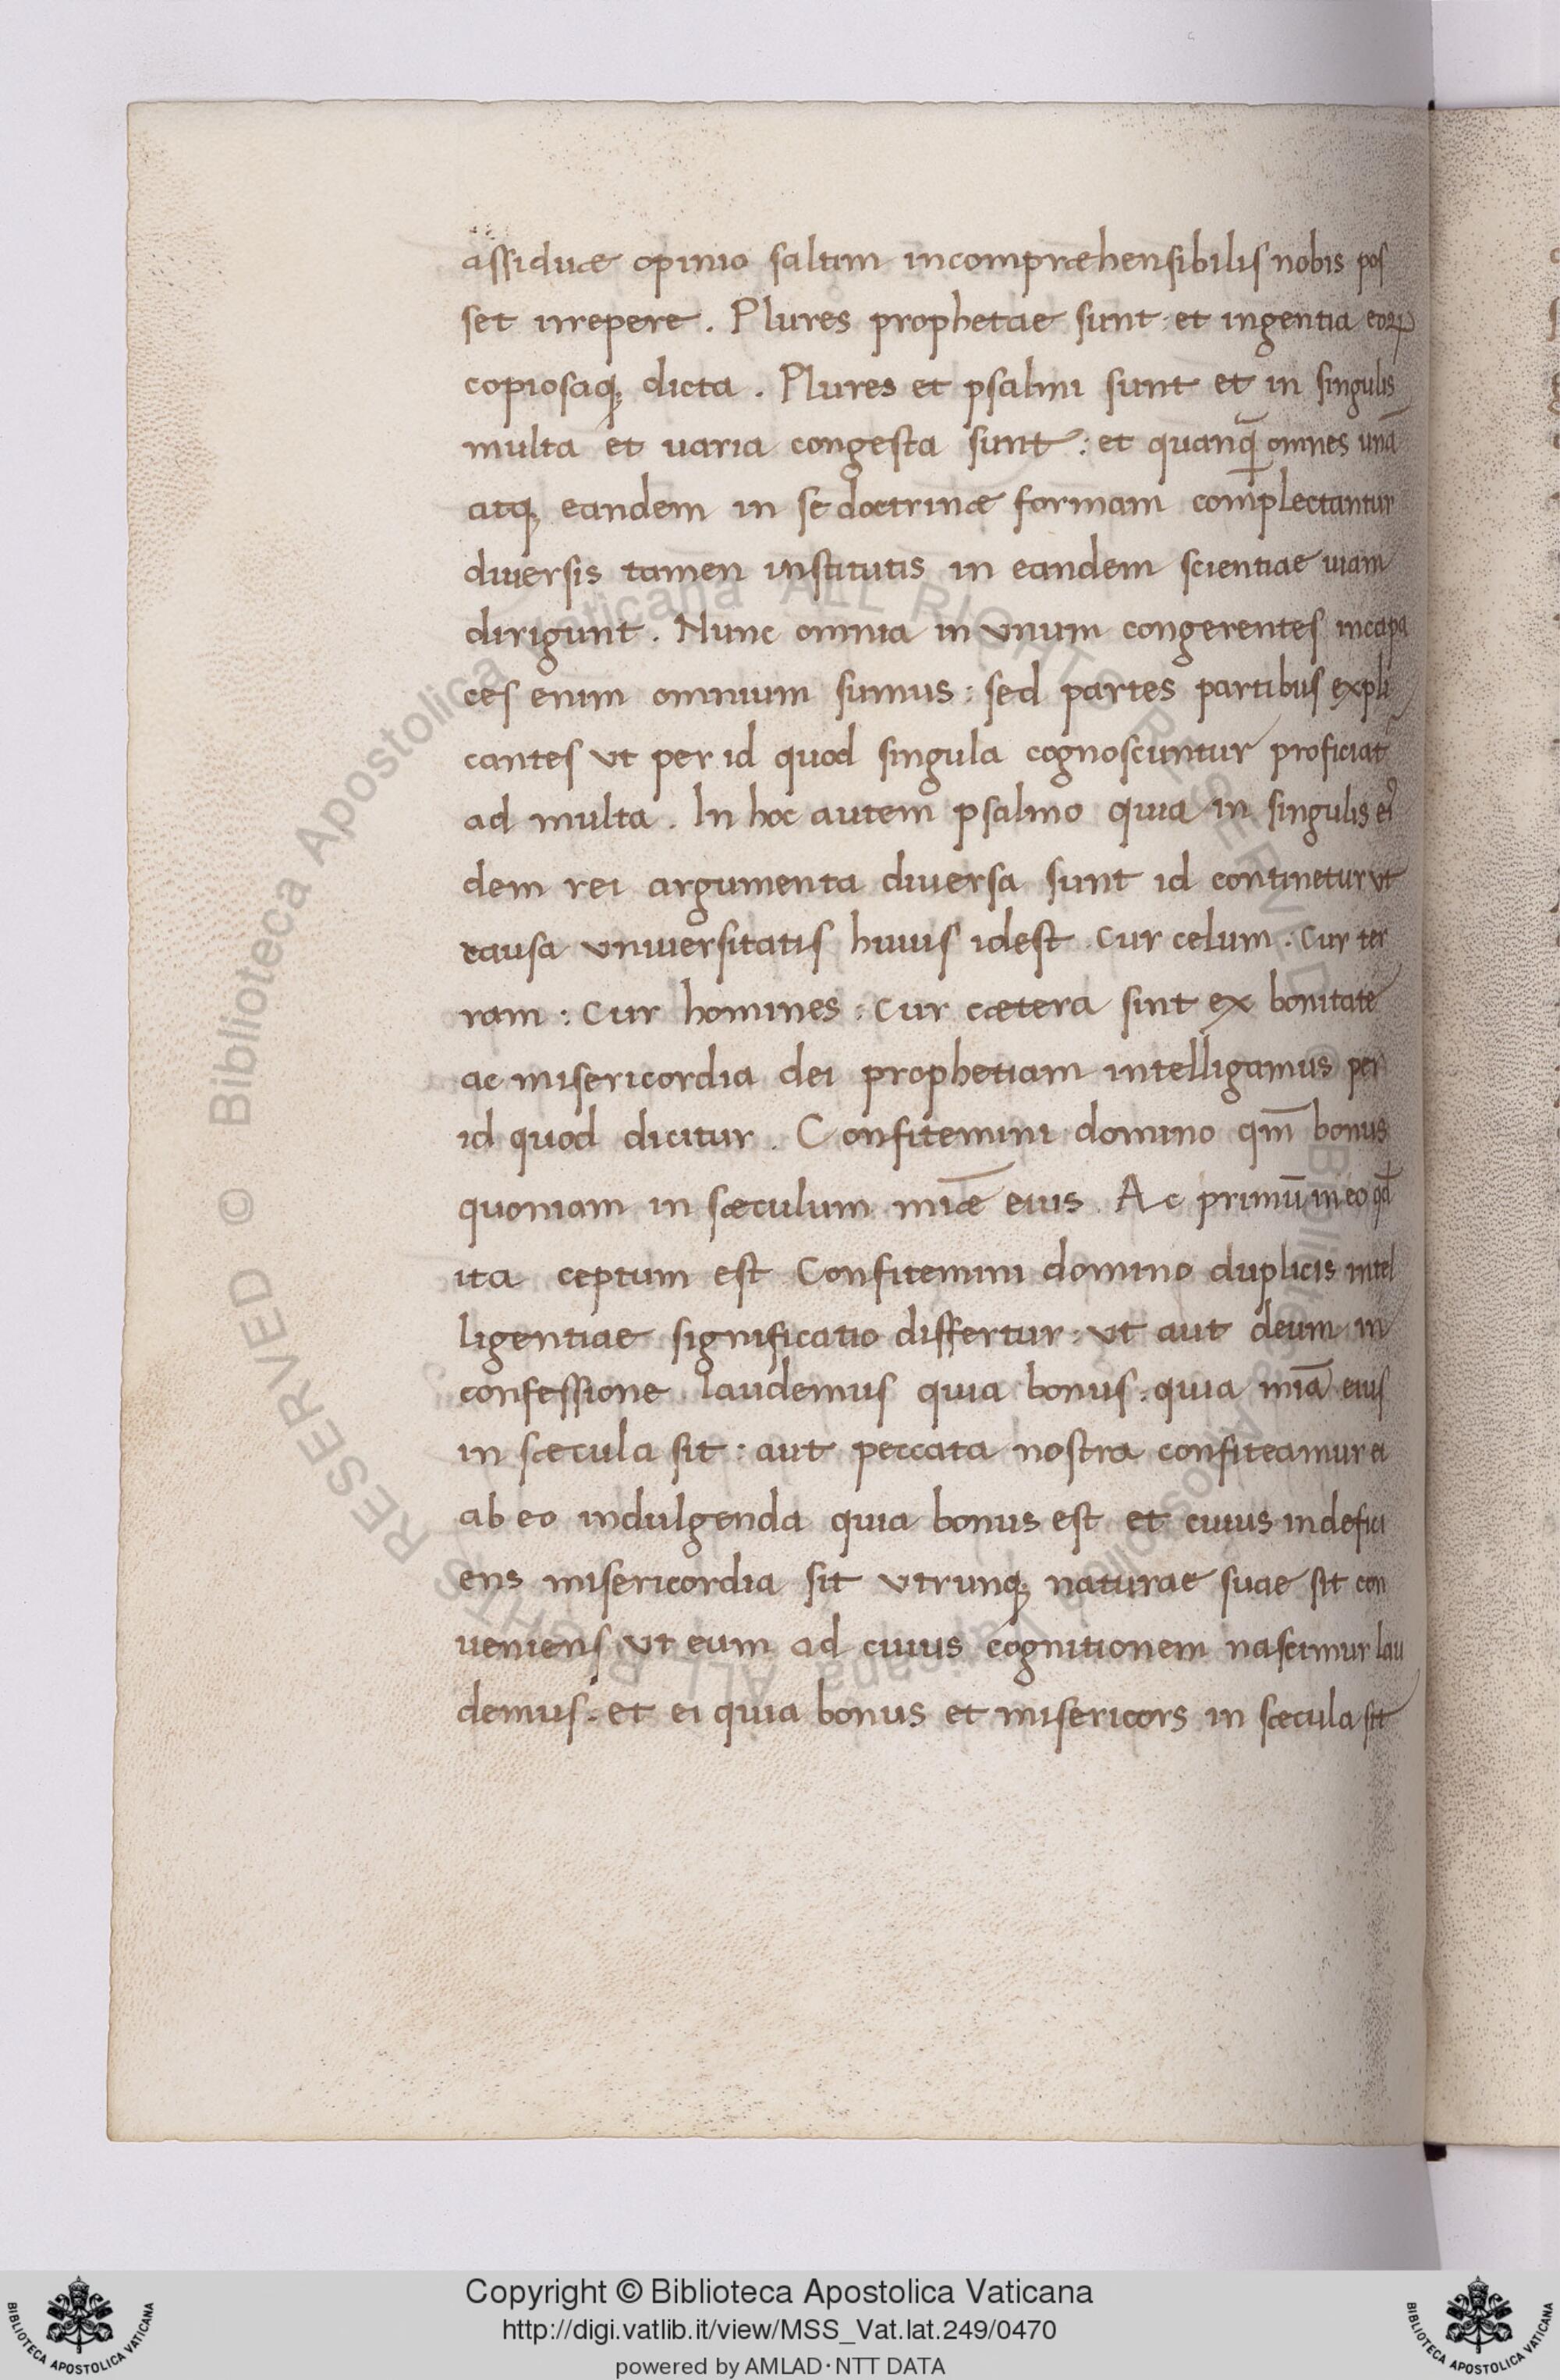 assiduæ opinio saltim incompræhensibilis nobis pos
set irrepere. Plures prophetae sunt: et ingentia eoꝝ
copiosaq; dicta. Plures et psalmi sunt et in singulis
multa et uaria congesta sunt: et quanq̃ omnes unā
atq; eandem in se doctrinæ formam complectantur
diuersis tamen institutis in eandem scientiae uiam
dirigunt. Nunc omnia in vnum congerentes incapa
ces enim omnium sumus: sed partes partibus expli
cantes vt per id quod singula cognoscuntur proficiat
ad multa. In hoc autem psalmo quia in singulis ei
dem rei argumenta diuersa sunt id continetur vt
causa vniuersitatis huius idest cur celum. cur ter
ram: cur homines: cur cætera sint ex bonitate
ac misericordia dei prophetiam intelligamus per
id quod dicitur. Confitemini domino qm̄ bonus
quoniam in sæculum miǣ eius. Ac primū in eo qđ
ita ceptum est Confitemini domino duplicis intel
ligentiae significatio differtur: vt aut deum in
confessione laudemus quia bonus: quia mīa eius
in sæcula sit: aut peccata nostra confiteamur ei
ab eo indulgenda quia bonus est et cuius indefici
ens misericordia sit vtrunq; naturae suae sit con
ueniens vt eum ad cuius cognitionem nascimur lau
demus. et ei quia bonus et misericors in sæcula sit
© Biblioteca Apostolica Vaticana ALL RIGHTS RESERVED © Biblioteca Apostolica Vaticana ALL RIGHTS RESERVED
BIBLIOTECA APOSTOLICA VATICANA
Copyright © Biblioteca Apostolica Vaticana
http://digi.vatlib.it/view/MSS_Vat.lat.249/0470
powered by AMLAD·NTT DATA
BIBLIOTECA APOSTOLICA VATICANA